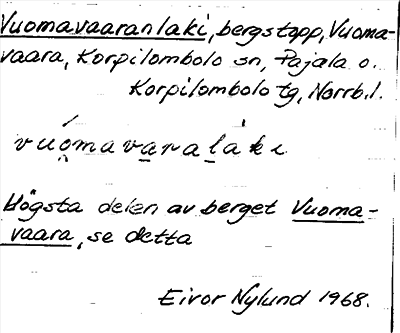 Vuomavaaranlaki, bergstopp, Vuoma-
vaara, Korpilombolo sn, Pajala o.
Korpilombolo tg, Norrb. l.
vuómavaralàki
Högsta delen av berget Vuoma-
vaara, se detta
Eivor Nylund 1968.